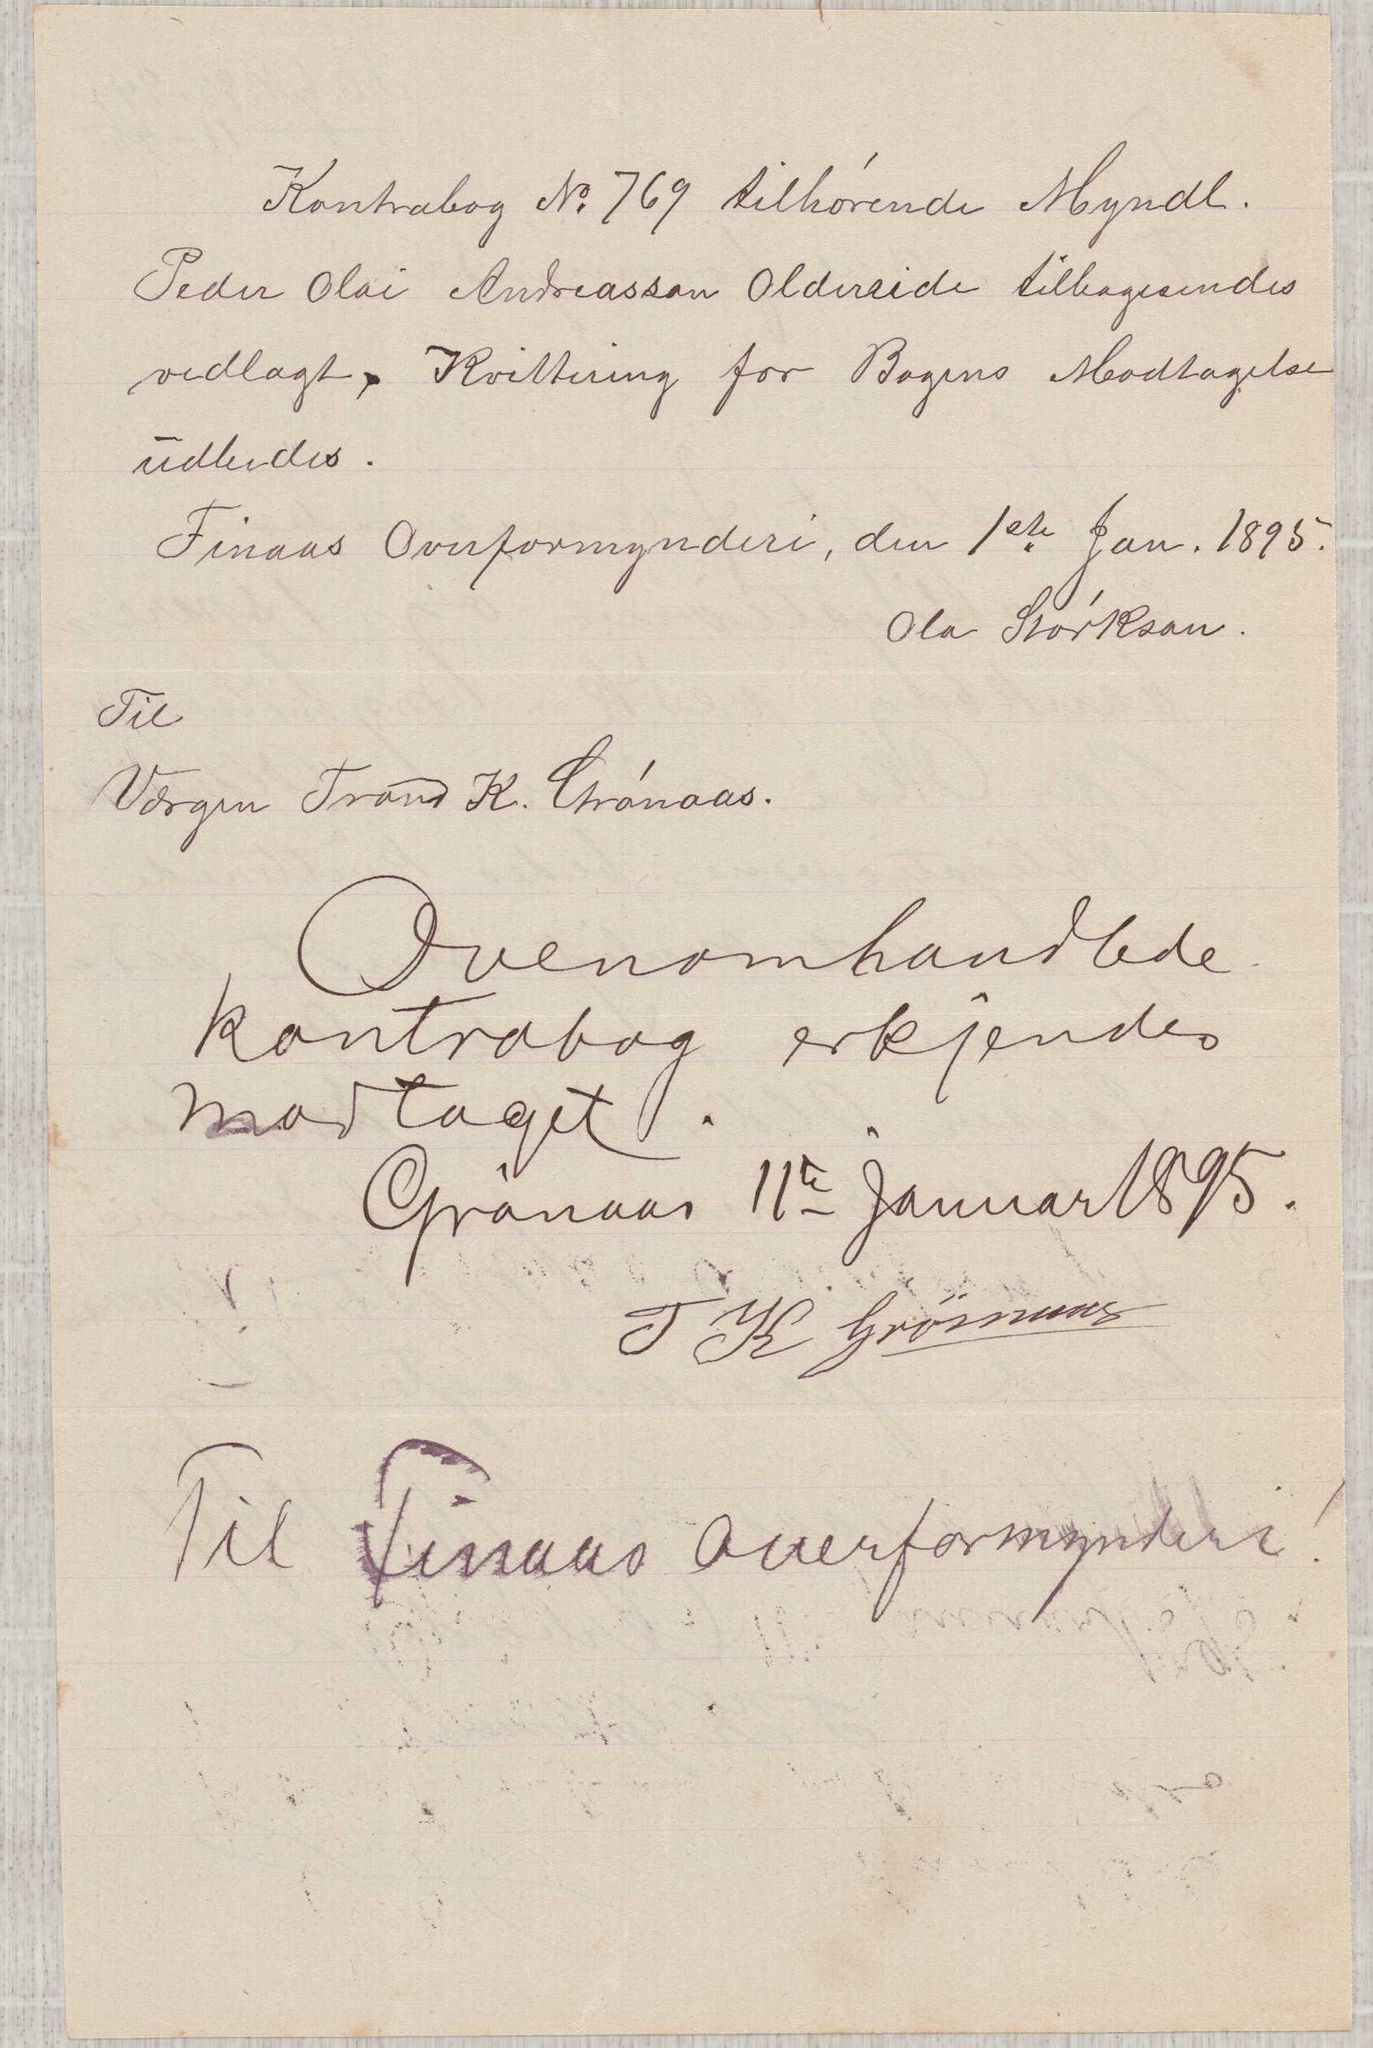 Kontrabog No. 769 tilhørende Myndl.
Peder Olai Andreasson Olderside tilbagesendes
vedlagt, Kvittering for Bogens Modtagelse
udbedes.
Finaas Overformynderi, den 1ste Jan. 1895.
Ola Størkson.
Til
Værgen Trond K. Grönaas.
Ovenomhandlede
kontrabog erkjendes
modtaget.
Grönaas 11te januar 1895.
T K Grönnaas
Til Finaas Overformynderi!